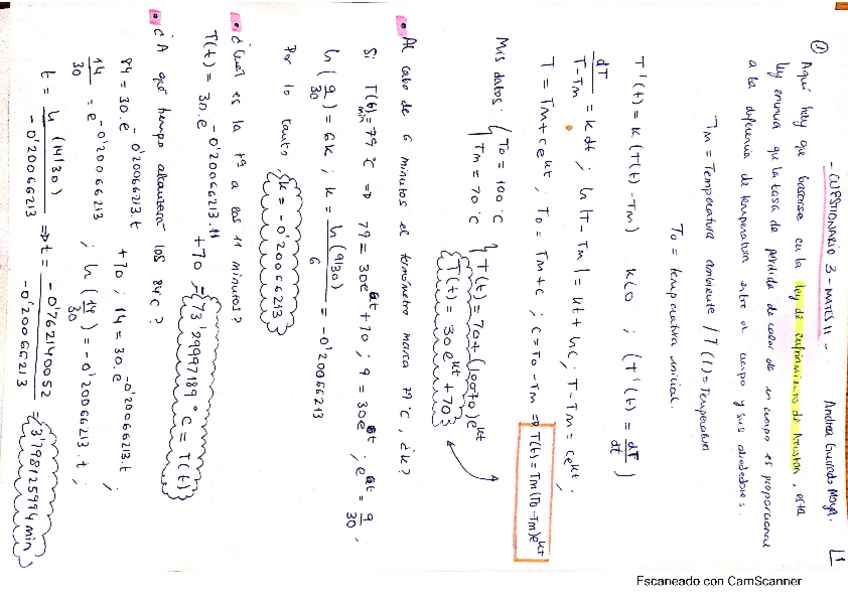 - CUESTIONARIO 3 - MATES II -
Andrea Guerrado Moya. 1
① Aquí hay que basarse en la ley de enfriamiento de Newton, esta
ley enuncia que la tasa de pérdida de calor de un cuerpo es proporcional
a la diferencia de temperatura entre el cuerpo y sus alrededores.
Tm = Temperatura ambiente / T(t) = Temperatura
T0 = temperatura inicial.
T'(t) = k (T(t) - Tm) k<0 ; (T'(t) = dT/dt)
dT/T-Tm = k dt ; ln |T - Tm| = kt + ln c ; T - Tm = c e^kt ;
T = Tm + c e^kt ; T0 = Tm + c ; c = T0 - Tm ⇒ T(t) = Tm (T0 - Tm) e^kt
Mis datos: { T0 = 100°C Tm = 70°C } T(t) = 70 + (100-70) e^kt
T(t) = 30 e^kt + 70
• Al cabo de 6 minutos el termómetro marca 79°C, ¿k?
Si T(6) min = 79°C ⇒ 79 = 30e^6k + 70 ; 9 = 30e^6k ; e^6k = 9/30 ;
ln (9/30) = 6k ; k = ln (9/30) / 6 = -0'20066213
Por lo tanto k = -0'20066213
• ¿Cuál es la tª a los 11 minutos?
T(t) = 30 · e^-0'20066213 · 11 + 70 = 73'29997189°C = T(t)
• ¿A qué tiempo alcanzará los 84°C?
84 = 30 · e^-0'20066213 · t + 70 ; 14 = 30 · e^-0'20066213 · t ;
14/30 = e^-0'20066213 ; ln (14/30) = -0'20066213 · t ;
t = ln (14/30) / -0'20066213 ⇒ t = -0'762140052 / -0'20066213 = 3'798125994 min
Escaneado con CamScanner